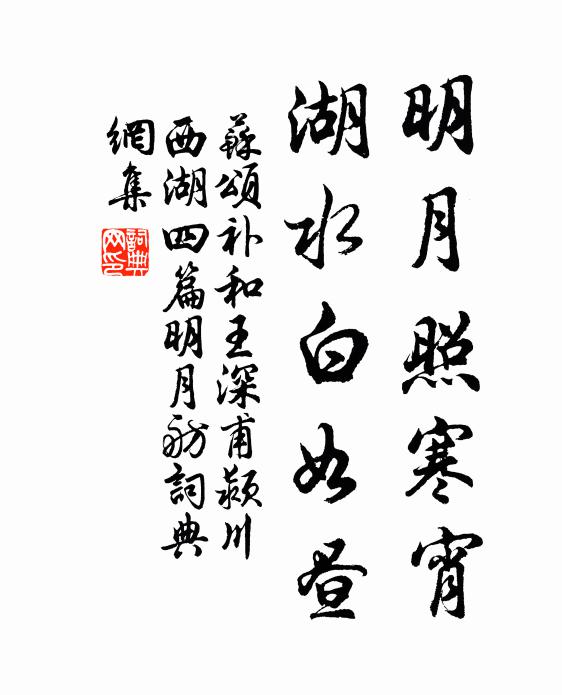 明月照寒宵
湖水白如昼
蘇頌补和王深甫潁川
西湖四篇明月舫詞典
網集
詞典
网印